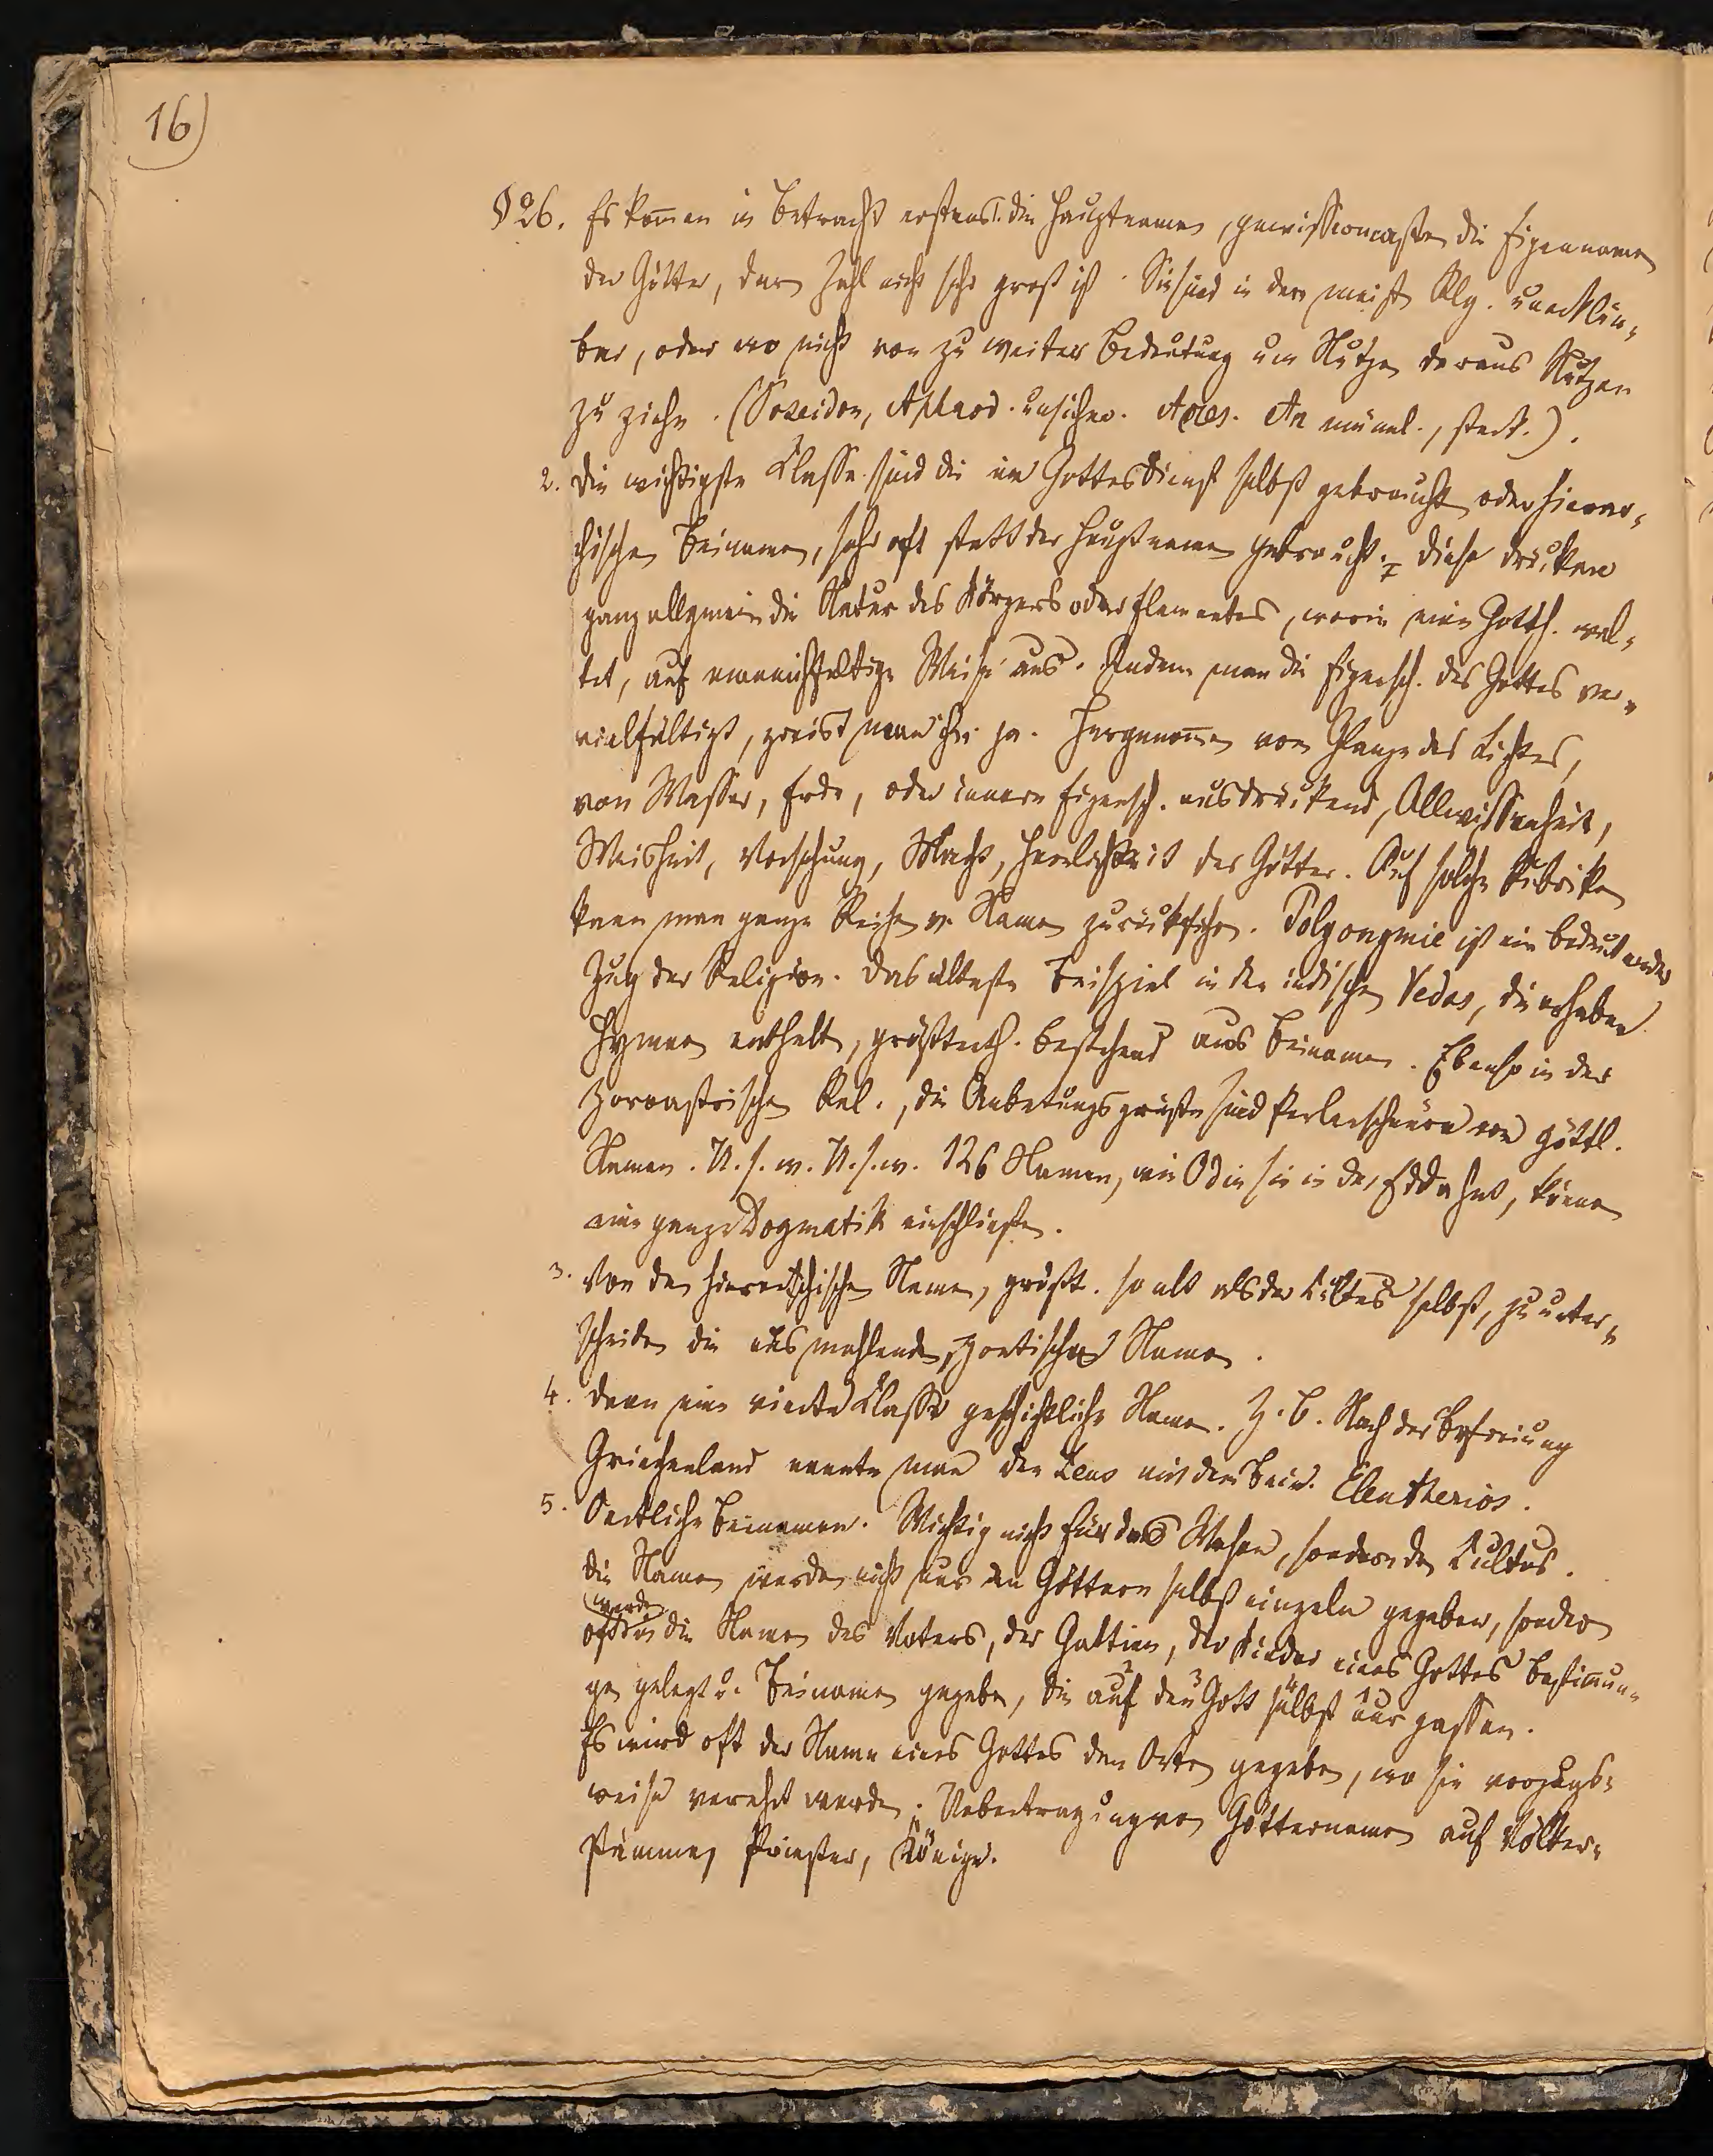 16)
§ 26. Es kom̅en in Betracht erstens 1. die Hauptnamen, gewissermaßen die Eigennamen
der Götter, deren Zahl nicht sehr groß ist. Sie sind in der meist Rlg. unerklär-
bar, oder wo nicht von zu weiter Bedeutung um Nutzen daraus Nutzen
zu ziehn. (Poseidon, Aphrod. unsicher. Ares. An männl., stark.).
2. Die wichtigste Classe sind die im Gottesdienst selbst gebraucht oder hierar-
chischen Beinamen, sehr oft statt der Hauptnamen gebraucht. Diese drücken
ganz allgemein die Natur des Körpers oder Elementes, worin eine Gotth. wal-
tet, auf mannichfaltige Weise aus. Indem man die Eigensch. des Gottes ver-
vielfältigt, preist man ihn ja. Hergenom̅en vom Glanze des Lichtes,
von Wasser, Erde, oder innere Eigensch. ausdrückend, Allwissenheit,
Weisheit, Vorsehung, Macht, Herrlichkeit der Götter. Auf solche Rubriken
kann man ganze Reihen v. Namen zurückführen. Polyonymie ist ein bedeutender
Zug der Religion. Das älteste Beispiel in den indischen Vedas, die erhabene
Hymnen enthalt, größtenth. bestehend aus Beinamen. Ebenso in der
zoroastrischen Rel., die Anbetungsgrüße sind Perlenschnüre von göttl.
Namen. U. s. w. U. s. w. 126 Namen, wie Odin sie in der Edda hat, können
eine ganze Dogmatik einschließen.
3. Von den hierarchischen Namen, größt. so alt als der Cultus selbst, zu unter-
scheiden die ausmahlenden, poetischen Namen.
4. Dann eine vierte Classe geschichtliche Namen. Z. B. Nach der Befreiung
Griechenland nannte man den Zeus mit dem Bein. Eleutherios.
5. Oertliche Beinamen. Wichtig nicht für das Wesen, sondern den Cultus.
Die Namen werden nicht nur den Göttern selbst einzeln gegeben, sondern
werden
oft in die Namen des Vaters, der Gattin, der Kinder eines Gottes Bestim̅un-
gen gelegt u. Beinamen gegeben, die auf den Gott selbst nur passen.
Es wird oft der Name eines Gottes den Orten gegeben, wo sie vorzugs-
weise verehrt werden; Uebertragung von Götternamen auf Völker-
stämme, Priester, Könige.